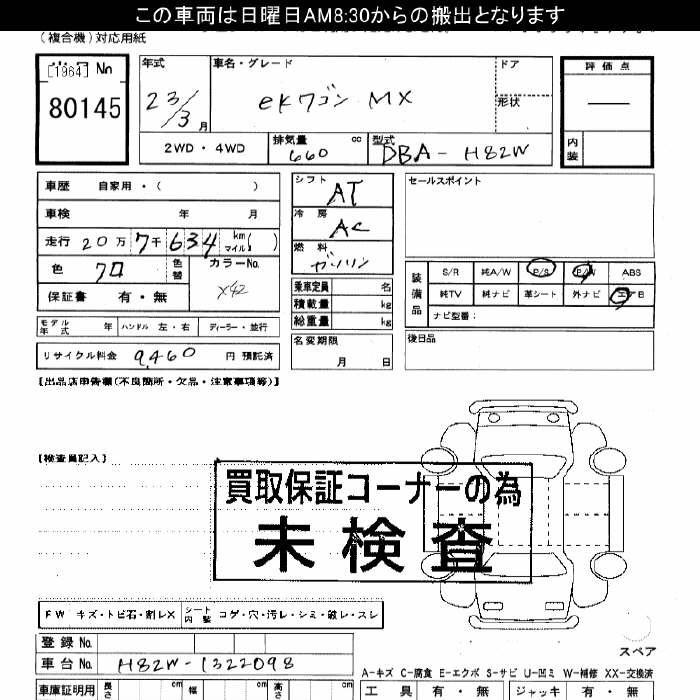 この車両は日曜日AM8:30からの搬出となります
(複合機)対応用紙
[1964] No
80145
年式 車名・グレード ドア 評価点
23/3月 eKワゴン MX 形状 ―
2WD・4WD 排気量 660 cc 型式 DBA-H82W 内装
車歴 自家用・( ) シフト AT セールスポイント
車検 年 月 冷房 AC
走行 20万7千634 km マイル( ) 燃料 ガソリン
色 クロ 色替 カラーNo. X42
保証書 有・無
装備品 S/R 純A/W P/S P/W ABS
純TV 純ナビ 革シート 外ナビ エアB
ナビ型番:
乗車定員 名
積載量 kg
総重量 kg
モデル年式 年 ハンドル 左・右 ディーラー・並行
名変期限 月 日 後日品
リサイクル料金 9,460 円 預託済
【出品店申告欄(不良箇所・欠品・注意事項等)】
【検査員記入】
買取保証コーナーの為
未検査
FW キズ・トビ石・割レX シート内装 コゲ・穴・汚レ・シミ・破レ・スレ
登録No.
車台No. H82W-1322098
スペア
A-キズ C-腐食 E-エクボ S-サビ U-凹ミ W-補修 XX-交換済
車庫証明用 長さ cm 幅 cm 高さ cm 工具 有・無 ジャッキ 有・無